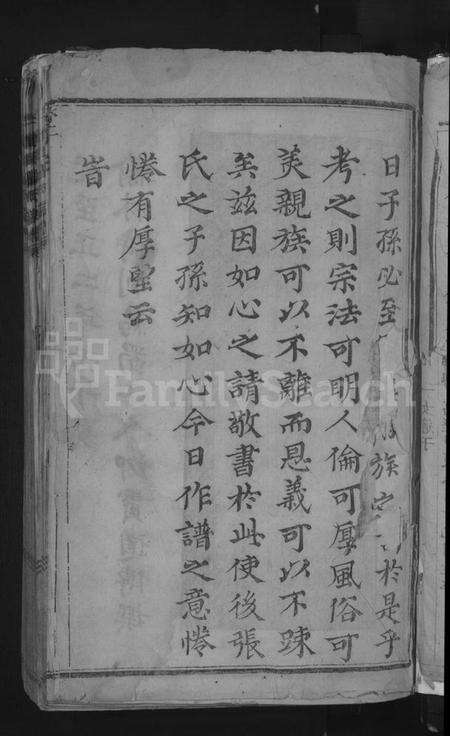 日子孫必至 族 於是乎
考之則宗法可明人倫可厚風俗可
美親族可以不離而恩義可以不踈
矣玆因如心之請敬書於此使後張
氏之子孫知如心今日作譜之意惓
惓有厚望云
旹
FamilySearch